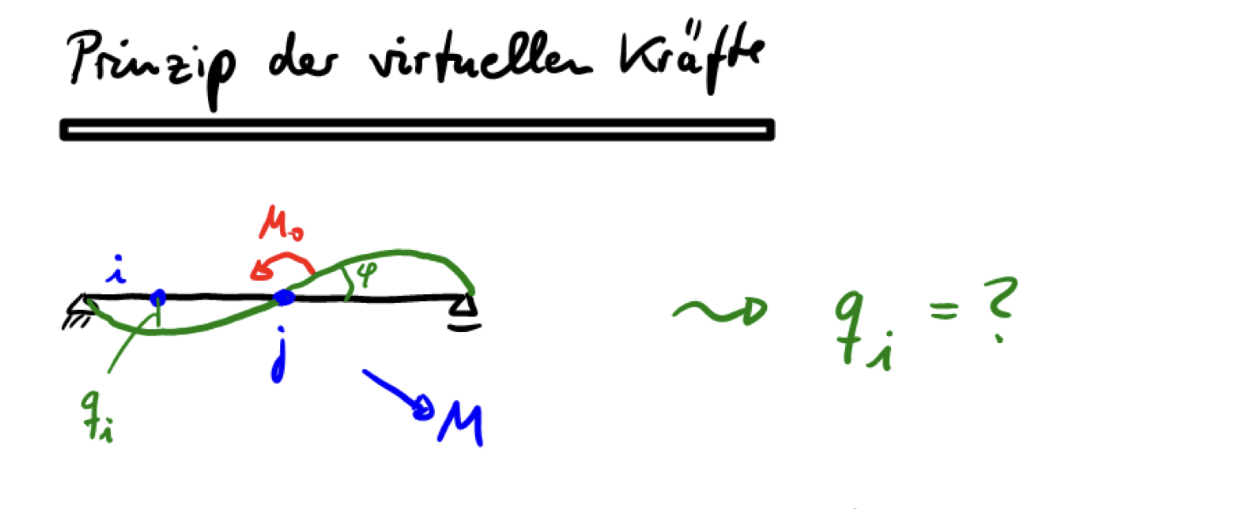 Prinzip der virtuellen Kräfte
M₀
i
φ
j
qᵢ
M
qᵢ = ?